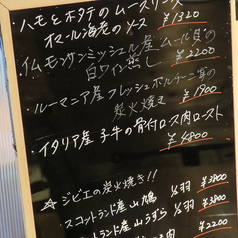 ・ハモとホタテのムースリーヌ
オマール海老のソース ¥1320
・仏モンサンミッシェル産 ムール貝の
白ワイン蒸し ¥2200
・ルーマニア産 フレッシュポルチーニ茸の
炭火焼き ¥1900
・イタリア産 子牛の骨付ロース肉ロースト
¥4800
☆ジビエの炭火焼き!!
・スコットランド産 山鳩 1/2羽 ¥2800
トランド産 山うずら 1/2羽 ¥3800
¥2200